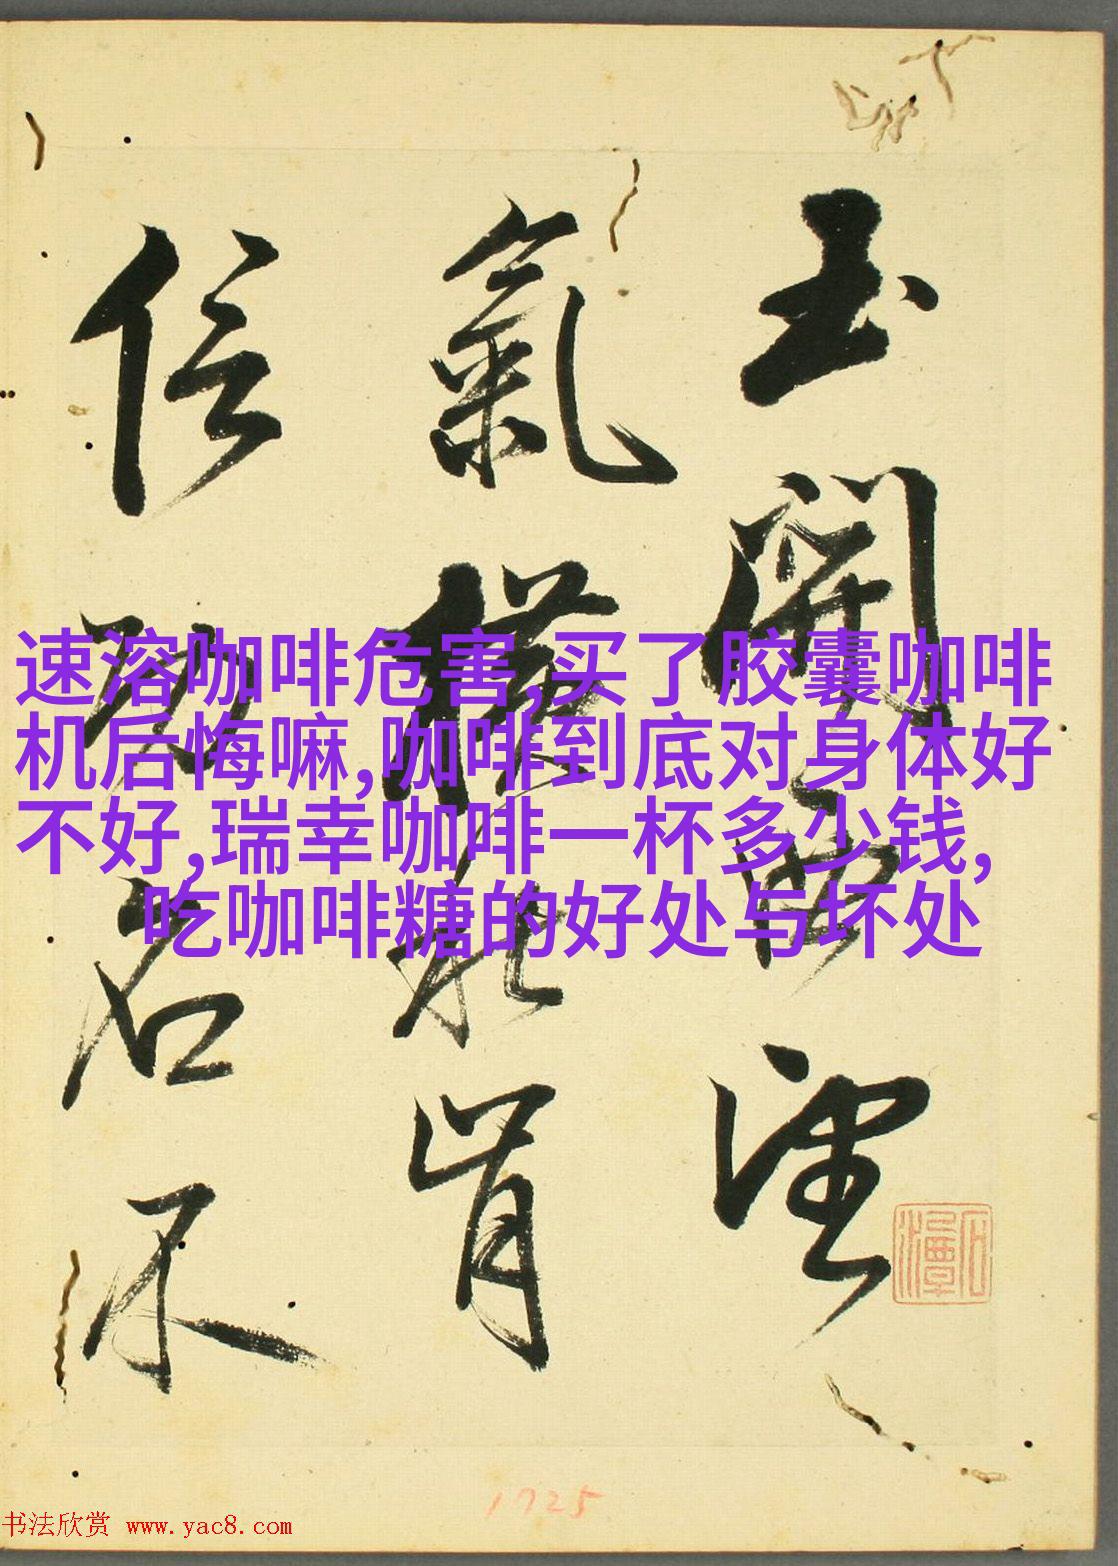 玉關西望
氣橫秋肯
信功名不
速溶咖啡危害,买了胶囊咖啡
机后悔嘛,咖啡到底对身体好
不好,瑞幸咖啡一杯多少钱,
吃咖啡糖的好处与坏处
1725
书法欣赏 www.yac8.com